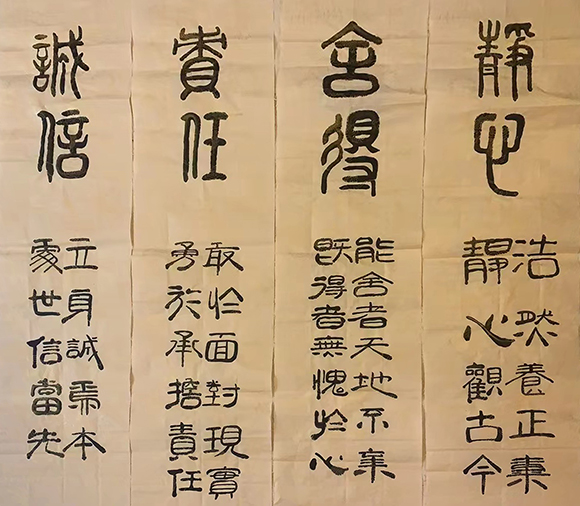 靜心
浩然養正
靜心觀古今
舍得
能舍者天地不棄
既得者無愧於心
責任
敢於面對現實
勇於承擔責任
誠信
立身誠為本
處世信當先